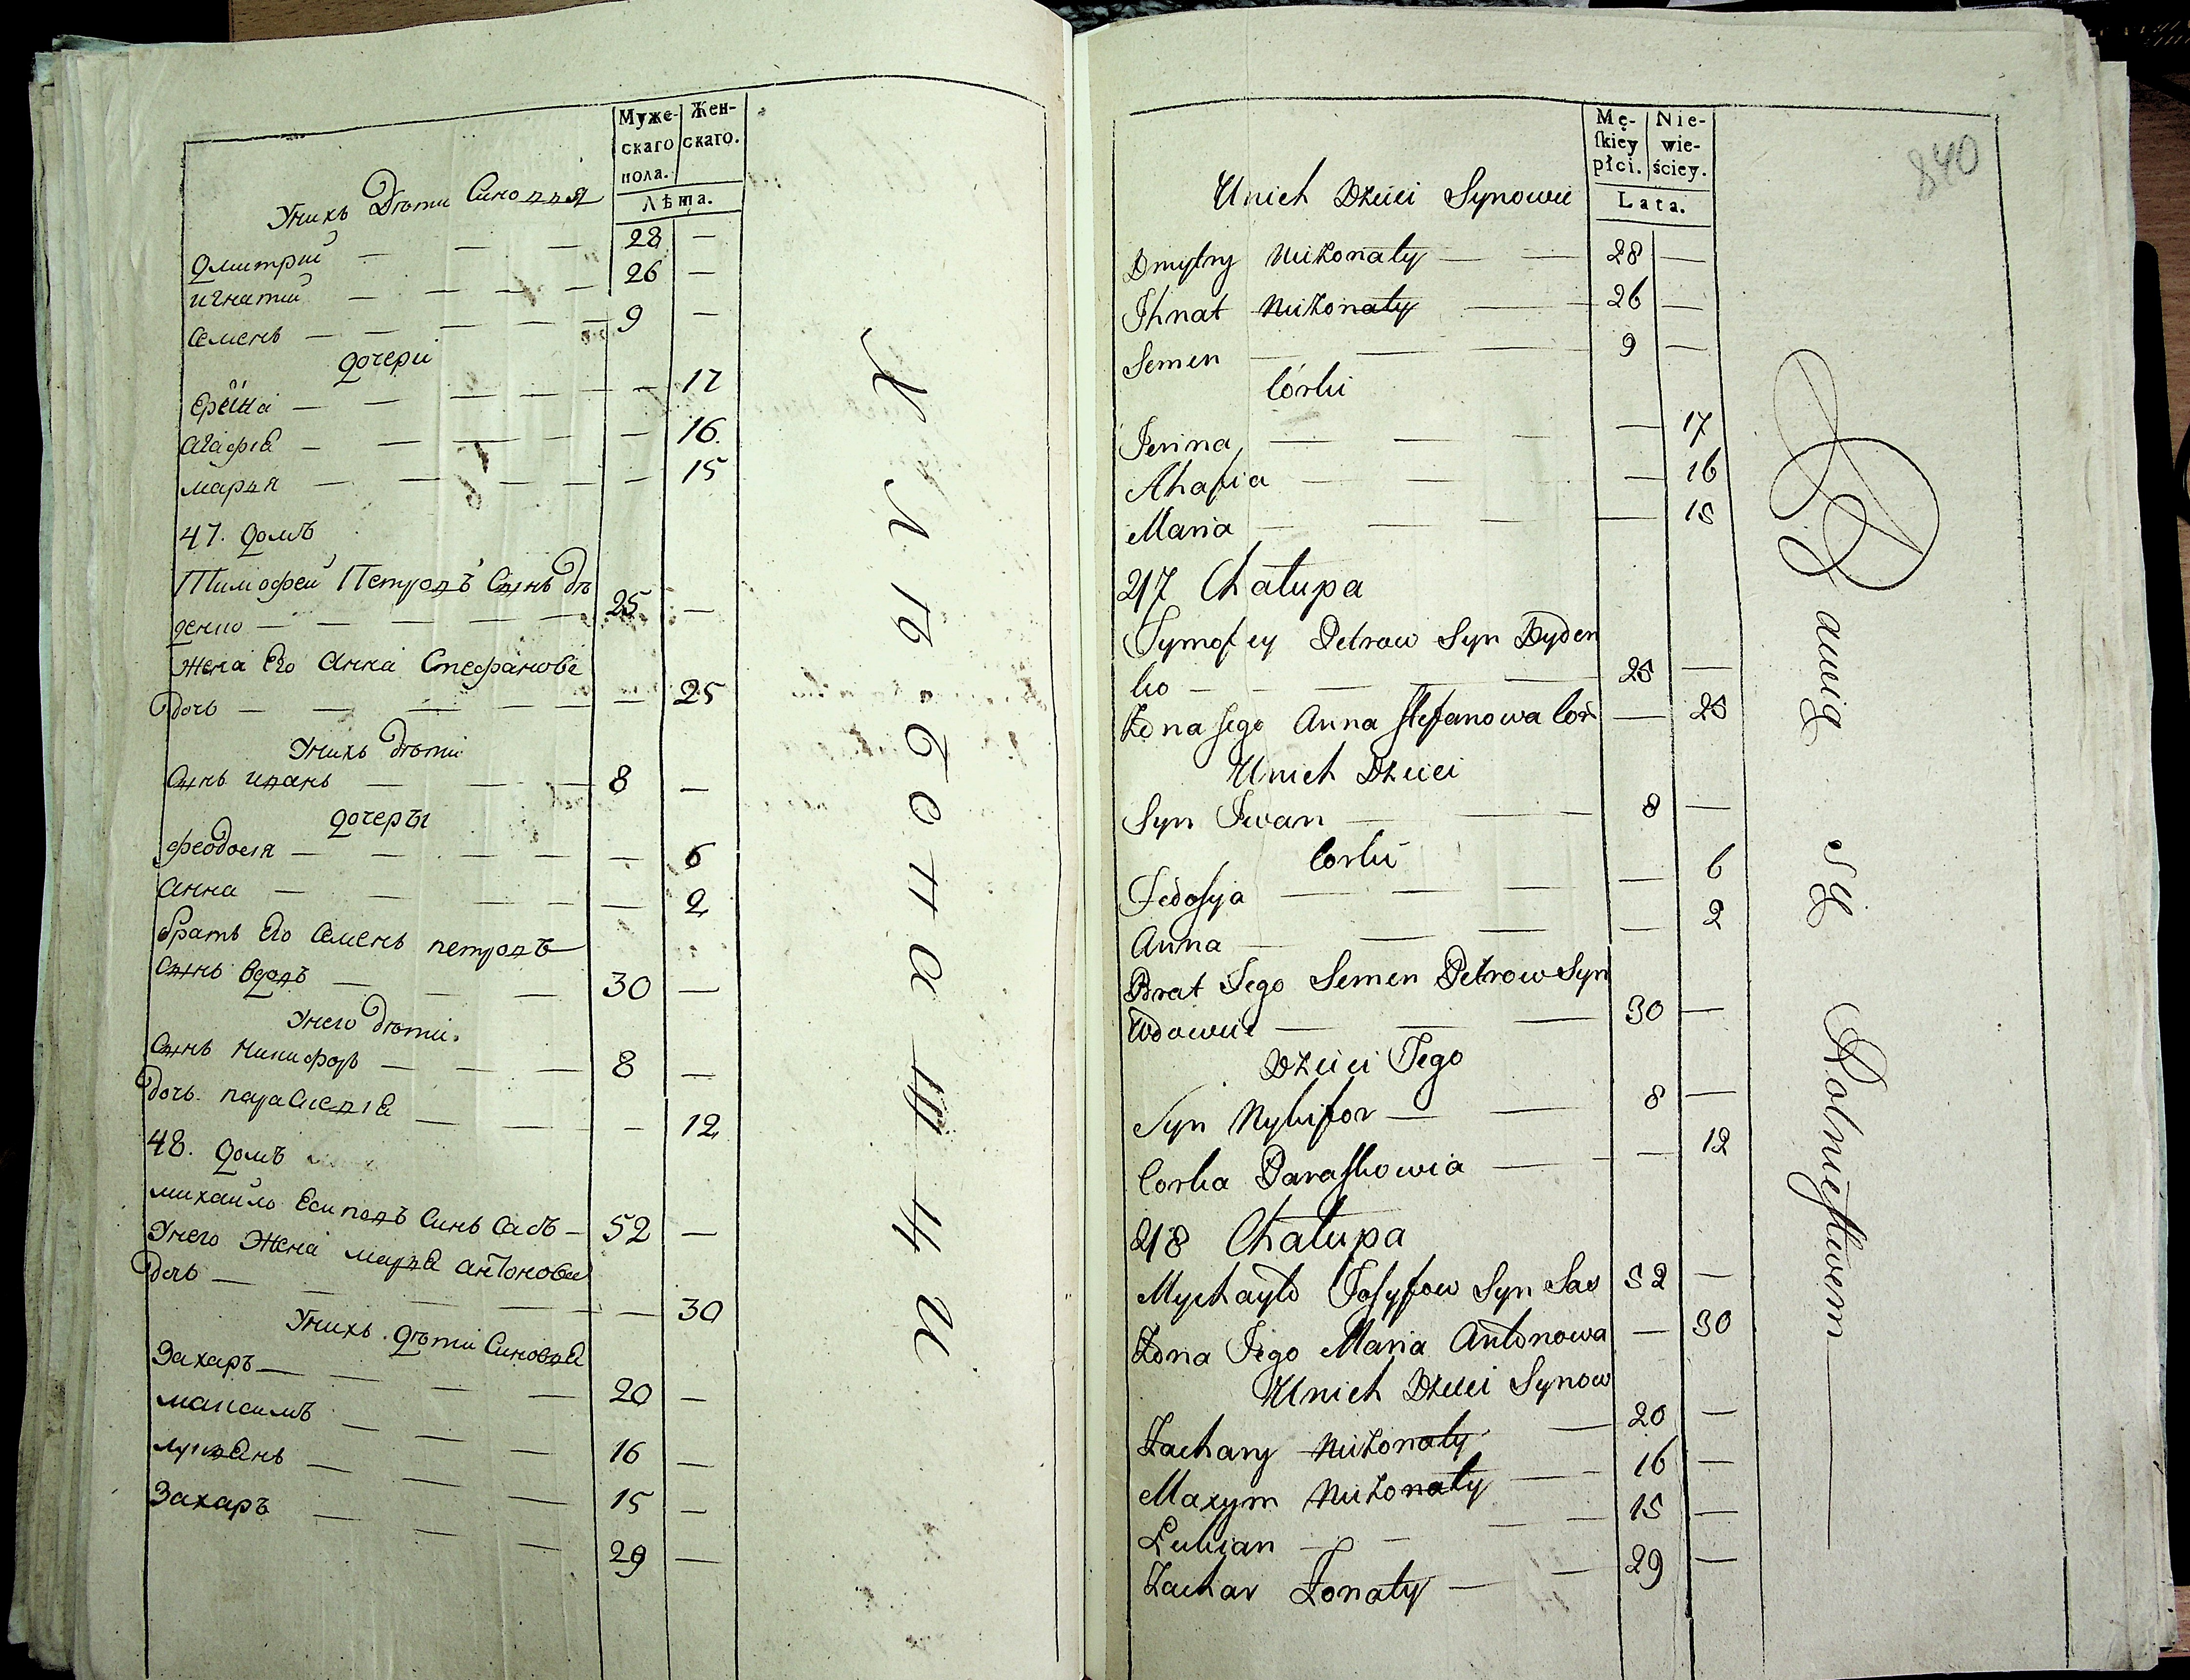 Муже-
скаго
пола.
Жен-
скаго.
Лѣта.
Унихъ Дѣти Синовья
Дмитрий — — — 28 —
игнатий — — — — 26 —
Семенъ — — — — 9 —
Дочери
Ерина — — — — — 17
агафіа — — — — — 16.
марья — — — — — 15
47. Домъ
Тимофей Петровъ Сынъ Дѣ
денко — — — — — 25 —
Жена Его Анна Стефанова
Дочь — — — — — 25
Унихъ дѣти
Сынъ иванъ — — — 8 —
Дочеры
Феодосия — — — — — 6
Анна — — — — — 2
братъ Его Семенъ петровъ
Сынъ вдовъ — — — 30 —
Унего дѣти.
Сынъ Никифоръ — — — 8 —
Дочь параскевіа — — — 12
48. Домъ
михайло Есиповъ Синъ Сасъ — 52 —
Унего Жена маріа антонова
Дочь — — — — — 30
Унихъ Дѣти Синовьа
Захаръ — — — — 20 —
максимъ — — — 16 —
лукианъ — — — 15 —
Захаръ — — — 29 —
Хлѣбопашци
Mę-
ſkiey
płci.
Nie-
wie-
ściey.
Lata.
840
Unich Dzieci Synowie
Dmytry Nieżonaty — — 28 —
Ihnat Nieżonaty — — 26 —
Semen — — — 9 —
Córki
Jerina — — — — 17
Ahafia — — — — 16
Maria — — — — 15
47 Chałupa
Tymofey Petrow Syn Dyden
ko — — — — 25 —
Żona Jego Anna Stefanowa Cor — 25
Unich Dzieci
Syn Iwan — — — 8 —
Corki
Fedoſya — — — — 6
Anna — — — — 2
Brat Jego Semen Petrow Syn
Wdowiec — — — 30 —
Dzieci Jego
Syn Nykifor — — 8 —
Corka Paraſkowia — — 12
48 Chałupa
Mychayło Joſyfow Syn Sas 52 —
Żona Jego Maria Antonowa — 30
Unich Dzieci Synow
Zachary Nieżonaty — 20 —
Maxym Nieżonaty — 16 —
Lukian — — — — 15 —
Zachar Żonaty — — 29 —
Bawią się Rolnictwem —